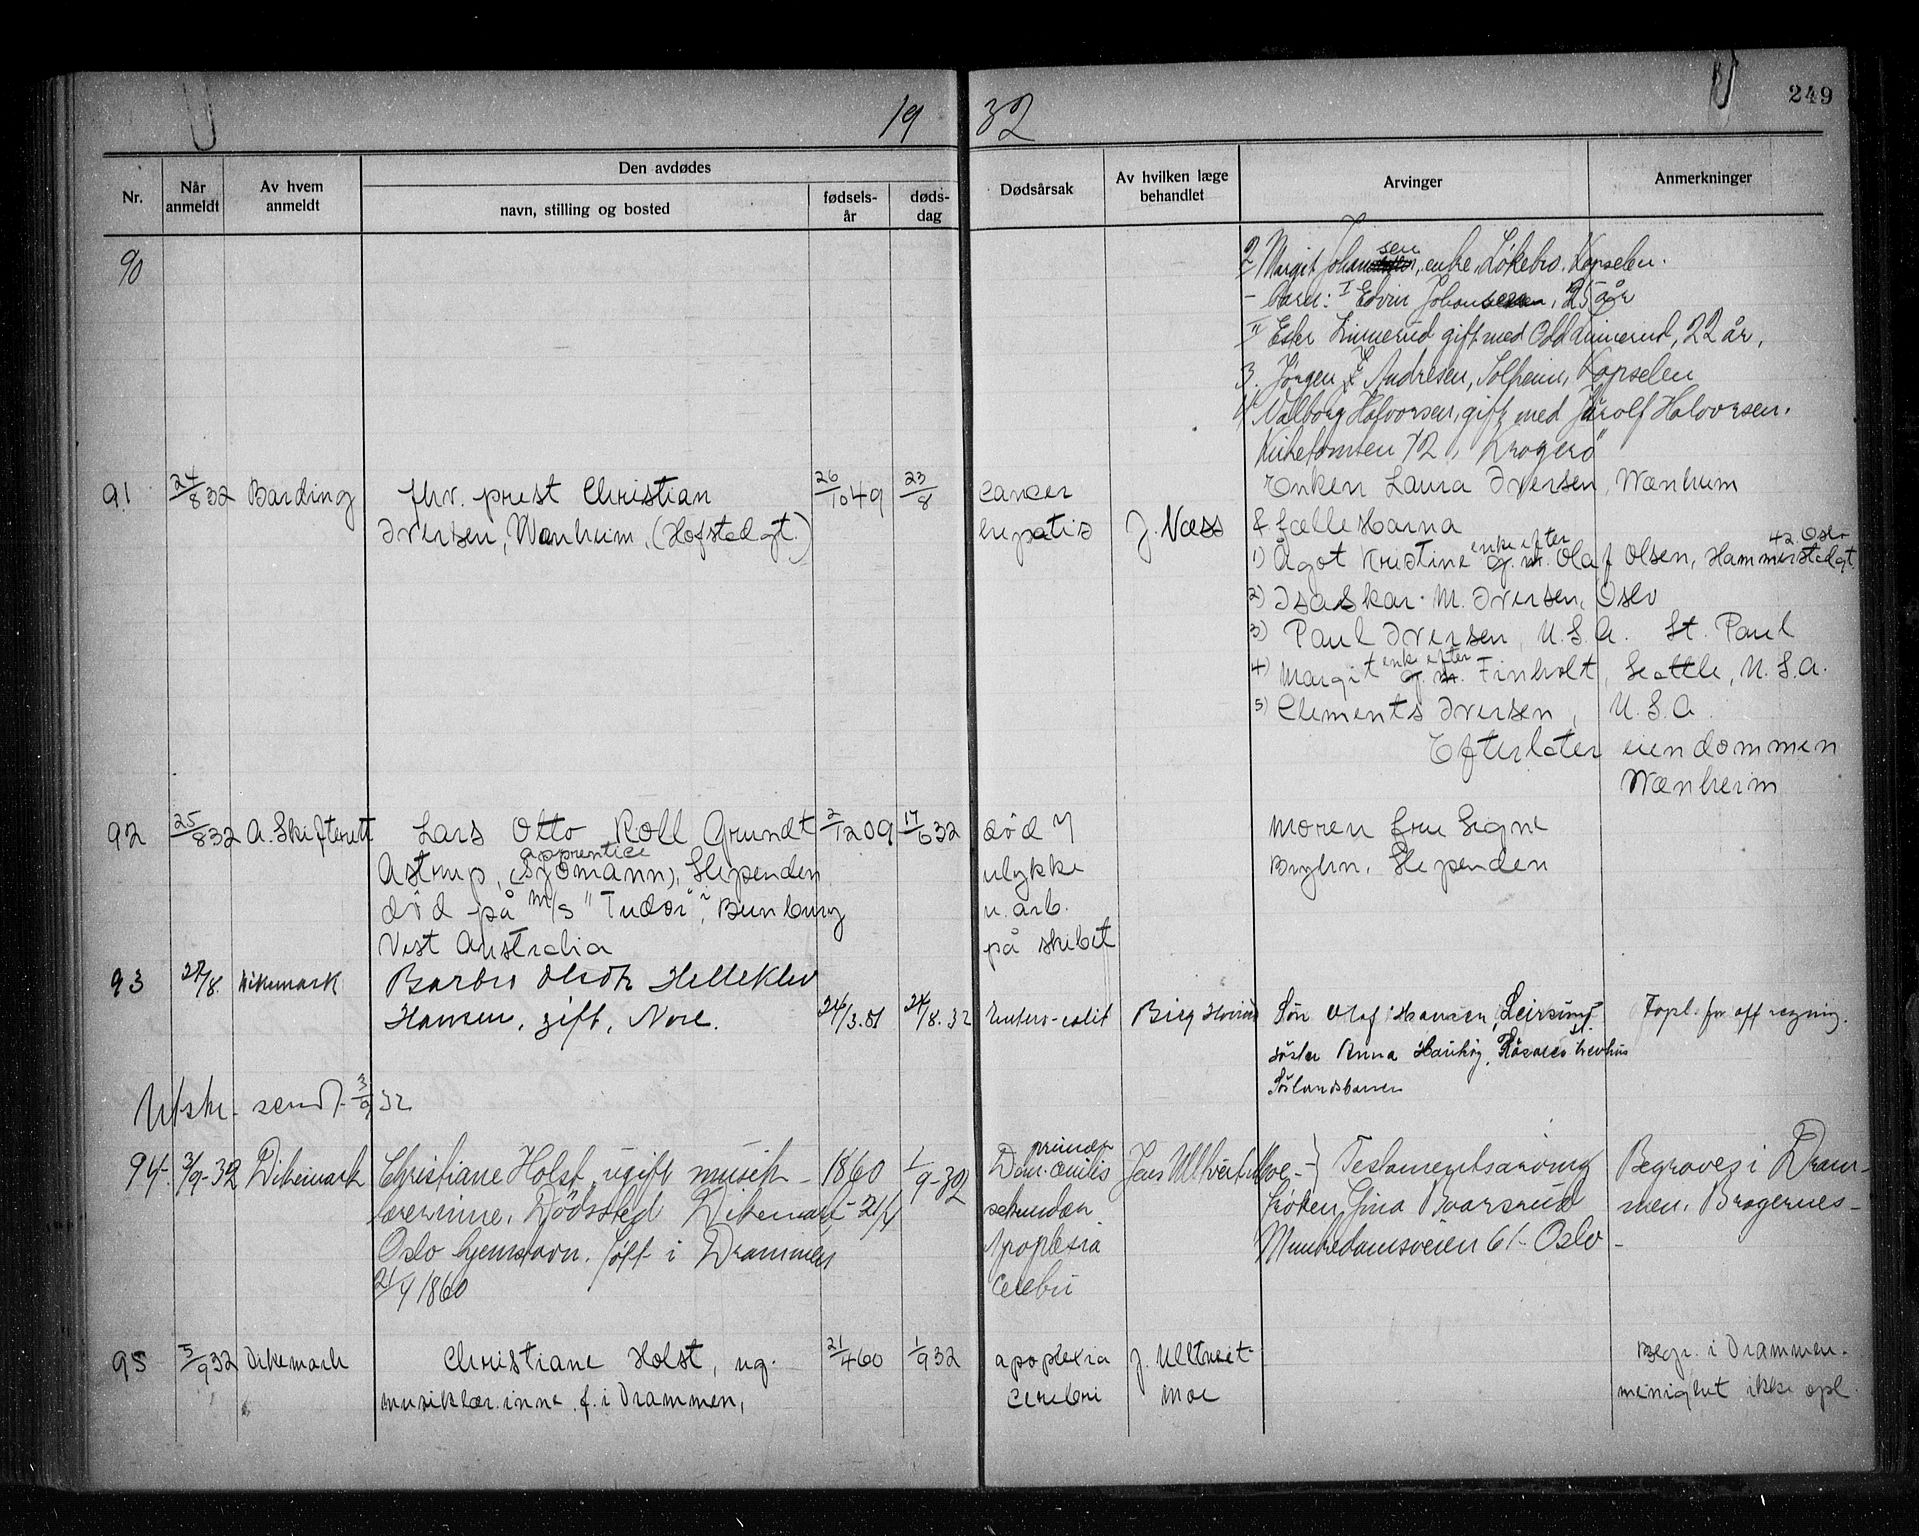 19 32
249
Nr. Når anmeldt Av hvem anmeldt Den avdødes navn, stilling og bosted fødselsår dødsdag Dødsårsak Av hvilken læge behandlet Arvinger Anmerkninger
90
2 Margit Johansen, enke, Løkebo. Kopselen.
- barn: I Edvin Johansen, 25 år
II Ester Linnerud gift med Odd Linnerud, 22 år,
3. Jørgen Andresen, Solheim, Kopselen
4 Valborg Halvorsen, gift med Halvorsen.
Kirketomten 12, Kragerø
91 24/8 32 Barding fhv. prest Christian 26/10 49 23/8 cancer Enken Laura Iversen, Wænheim
Iversen, Wænheim, (Hofstedgt.) hepatis J. Næss & fællesbarna
1) Ågot Kristine enke efter g.m. Olaf Olsen, Hammerstedgt. 42. Oslo
2) Isa Skar M. Iversen, Oslo
3) Paul Iversen, U.S.A. St. Paul
4) Margit enke efter g.m. Finholt, Seattle, U.S.A.
5) Clements Iversen, U.S.A.
Efterlater eiendommen
Wænheim
92 25/8 32 A. Skifterett Lars Otto Roll Grundt 2/12 09 17/6 32 død v Moren fru Signe
Astrup, (Sjømann) apprentice, Slependen ulykke Bryhn, Slependen
død på M/S "Tudor", Bunbury u. arb.
Vest Australia på skibet
93 27/8. Dikemark Barbro Olsdtr Helleklev
Hansen, gift, Nore. 24/3.81 24/8.32 Entero-colit Søn Olaf Hansen, opl. for off regning.
søster Anna
Sørlandsbanen
Utskr. sendt 3/9 32
94 3/9-32 Dikemark Christiane Holst, ugift musik- 1860 1/9-32 primær Jens Ulltveit Moe - Testamentsarving Begraves i Dram-
lærerinne. Dödssted Dikemark 21/4 sekundær frøken Gina Braarud men. Bragernes-
Oslo hjemstavn. født i Drammen Apoplexia Munkedamsveien 61 - Oslo -
21/4 1860 cerebri
95 5/9 32 Dikemark Christiane Holst, ug. 21/4 60 1/9 32 apoplexia J. Ulltveit- Begr. i Drammen.
musiklær.inne f. i Drammen, cerebri Moe menighet ikke opl.